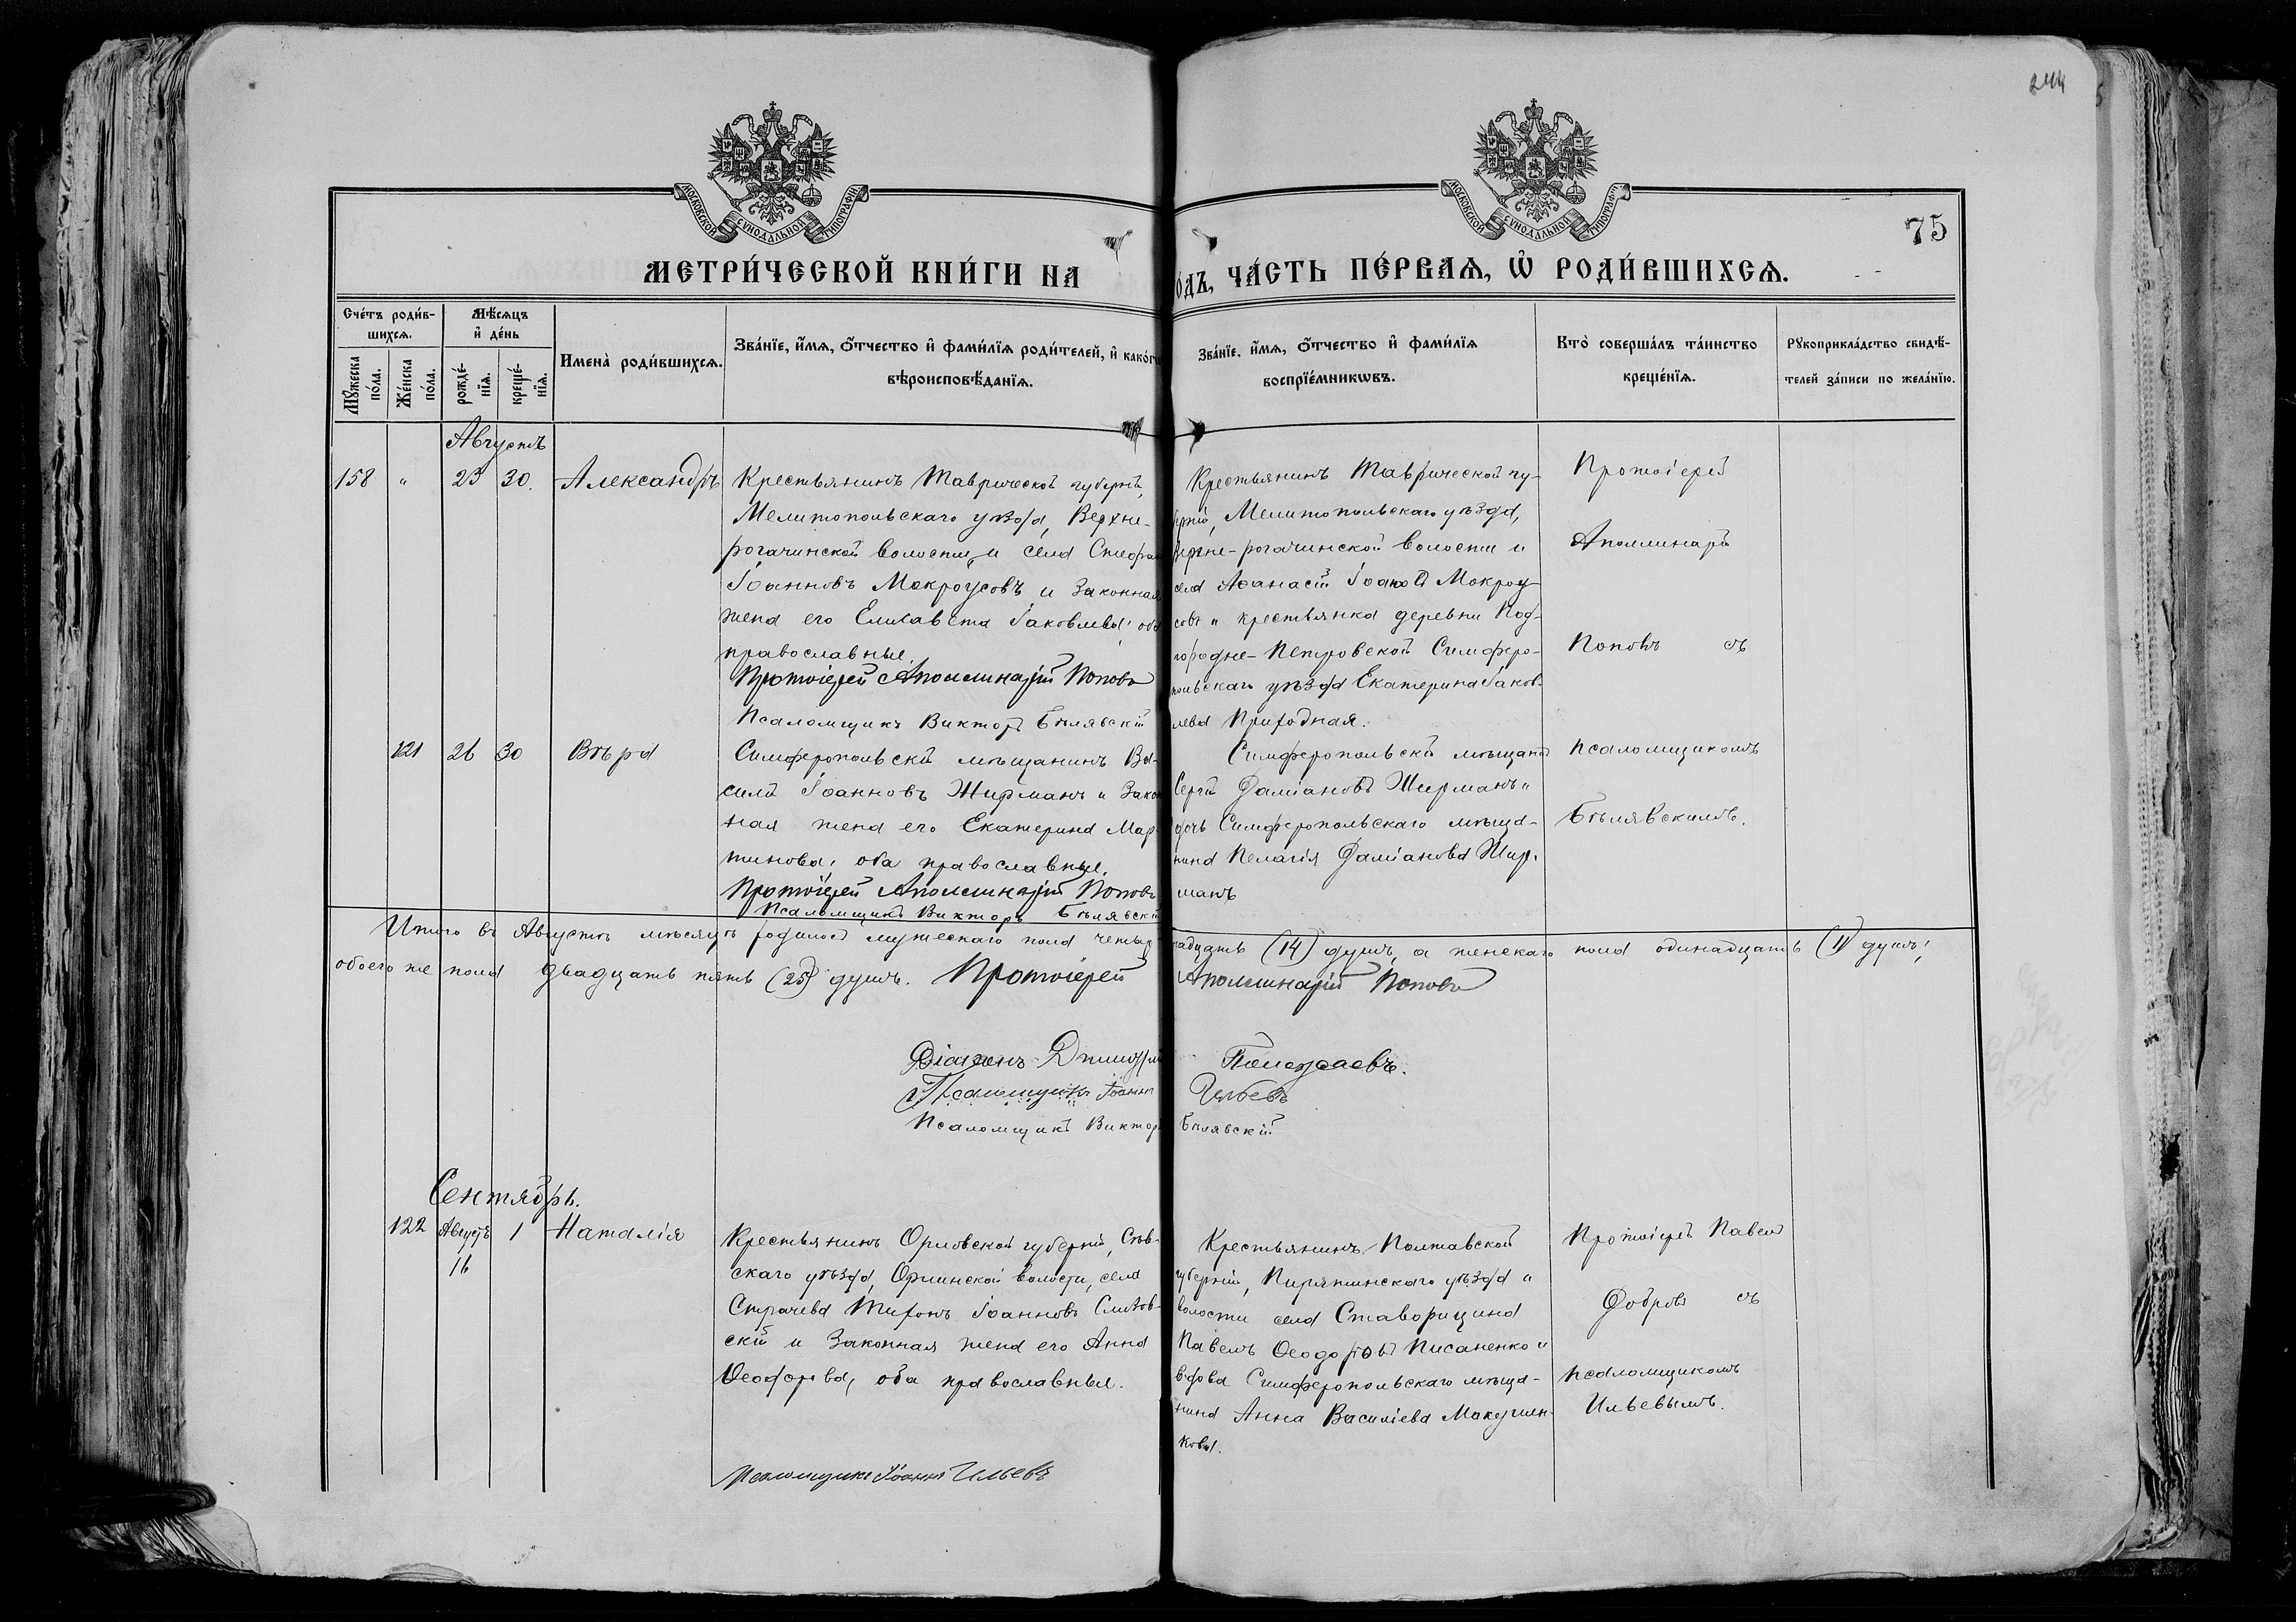 244
МОСКОВСКОЙ СѴНОДАЛЬНОЙ ТИПОГРАФІИ
МОСКОВСКОЙ СѴНОДАЛЬНОЙ ТИПОГРАФІИ
75
МЕТРИ́ЧЕСКОЙ КНИ́ГИ НА
ОДЪ, ЧА́СТЬ ПЕ́РВАѦ, Ѡ РОДИ́ВШИХСѦ.
Сче́тъ роди́в-
шихсѧ.
Мѣ́сѧцъ
и҆ де́нь
Мꙋ́жеска по́ла.
Же́нска по́ла.
рожде́-
нїѧ.
креще́-
нїѧ.
Имена̀ роди́вшихсѧ.
Зва́нїе, и҆́мѧ, ѻ҆́тчество и҆ фами́лїѧ роди́телей, и҆ како́гѡ
вѣроисповѣ́данїѧ.
Зва́нїе, и҆́мѧ, ѻ҆́тчество и҆ фами́лїѧ
воспрїе́мникѡвъ.
Кто̀ соверша́лъ та́инство
креще́нїѧ.
Рꙋкоприкла́дство свидѣ́-
телей за́писи по жела́нїю.
Августъ
158 " 23 30. Александръ
Крестьянинъ Таврической губерніи,
Мелитопольскаго уѣзда, Верхне-
рогачинской волости и села Стефан
Іоанновъ Мокроусовъ и законная
жена его Елисавета Іаковлева; оба
православные.
Протоіерей Аполлинарій Поповъ
Псаломщикъ Викторъ Бѣлявскій
Крестьянинъ Таврической гу-
берніи, Мелитопольскаго уѣзда,
Верхне-рогачинской волости и
села Аѳанасій Іоановъ Мокроу-
совъ и крестьянка деревни Под-
городне-Петровской Симферо-
польскаго уѣзда Екатерина Іаков-
лева Природная.
Протоіерей
Аполлинарій
Поповъ съ
121 26 30 Вѣра
Симферопольскій мѣщанинъ Ва-
силій Іоанновъ Ширманъ и закон
ная жена его Екатерина Мар-
тинова; оба православные.
Протоіерей Аполлинарій Поповъ
Псаломщикъ Викторъ Бѣлявскій
Симферопольскій мѣщанинъ
Сергій Даміановъ Ширманъ и
дочь Симферопольскаго мѣща-
нина Пелагія Даміанова Шир-
манъ
псаломщикомъ
Бѣлявскимъ.
Итого въ Августѣ мѣсяцѣ родилось мужескаго пола четыр
надцать (14) душъ, а женскаго пола одинадцать (11) душъ;
обоего же пола двадцать пять (25) душъ. Протоіерей
Аполлинарій Поповъ
Діаконъ Димитрій
Полежаевъ.
Псаломщикъ Іоаннъ
Ильевъ
Псаломщикъ Викторъ
Бѣлявскій
Сентябрь.
122 Августъ 1 Наталія
16
Крестьянинъ Орловской губерніи, Сѣв-
скаго уѣзда, Орлинской волости, села
Страчева Тихонъ Іоанновъ
скій и законная жена его Анна
Ѳеодорова, оба православные.
Псаломщикъ Іоаннъ Ильевъ
Крестьянинъ Полтавской
губерніи, Пирятинскаго уѣзда и
волости села Ставорицина
Павелъ Ѳеодоровъ Писаненко и
вдова Симферопольскаго мѣща-
нина Анна Василіева Макушен-
кова.
Протоіерей Павелъ
Добровъ съ
псаломщикомъ
Ильевымъ.